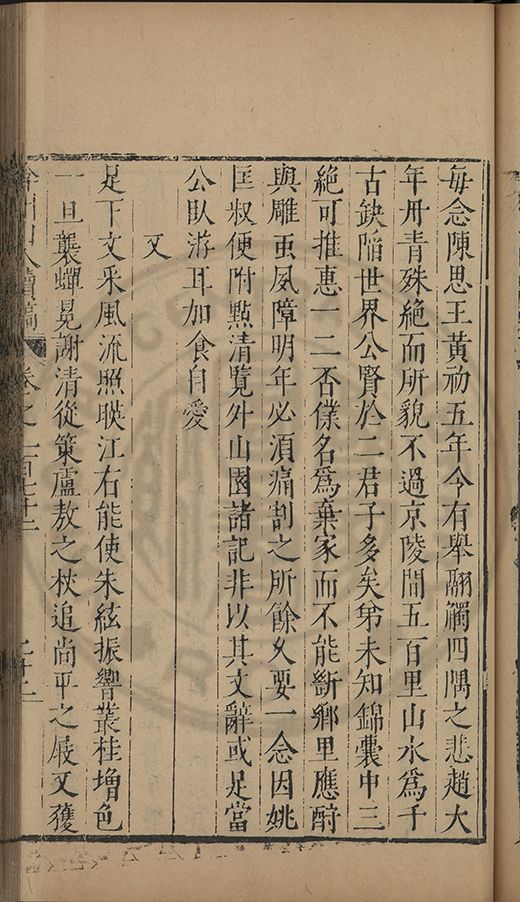 毎念陳思王黃初五年今有舉翮觸四隅之悲趙大
年丹青殊絕而所貌不過京陵間五百里山水爲千
古缺陷世界公賢於二君子多矣第未知錦囊中三
絕可推惠一二否僕名爲棄家而不能斷鄉里應酧
與雕虫夙障明年必須痛割之所餘乂要一念因姚
匡叔便附㸃清覽外山園諸記非以其文辭或足當
公臥游耳加食自愛
又
足下文采風流照映江右能使朱絃振響叢桂增色
一旦襲蟬冕謝清從策盧敖之杖追尚平之屐又獲
弇州山人續稿 卷之一百七十二